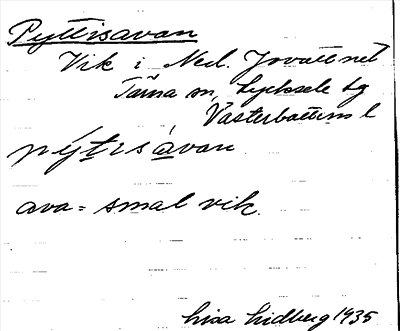 Pyttisavan
Vik i Ned. Jovattnet
Tärna sn, Lycksele lg
Västerbottens l
pýttisávan
ava = smal vik.
Lisa Lidberg 1935